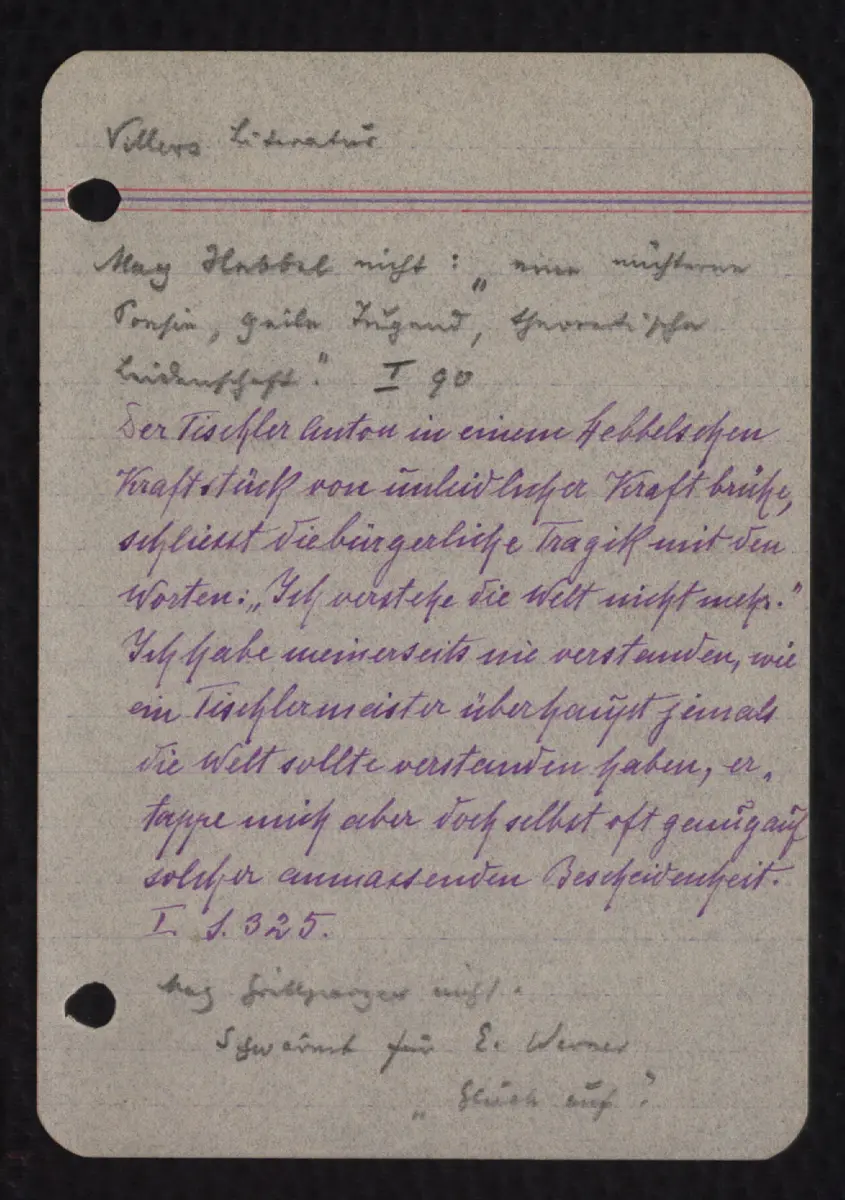 Villers Literatur
Mag Hebbel nicht : „ eine nüchterne
Poesie, geile Tugend, theoretische
Leidenschaft." I 90
Der Tischler Anton in einem Hebbelschen
Kraftstück von unleidlicher Kraftbrühe,
schliesst die bürgerliche Tragik mit den
Worten: „Ich verstehe die Welt nicht mehr."
Ich habe meinerseits nie verstanden, wie
ein Tischlermeister überhaupt jemals
die Welt sollte verstanden haben, er-
tappe mich aber doch selbst oft genug auf
solcher anmassenden Bescheidenheit.
I. S. 325.
Mag Grillparzer nicht.
Schwärmt für E. Werner
„ Glück auf "